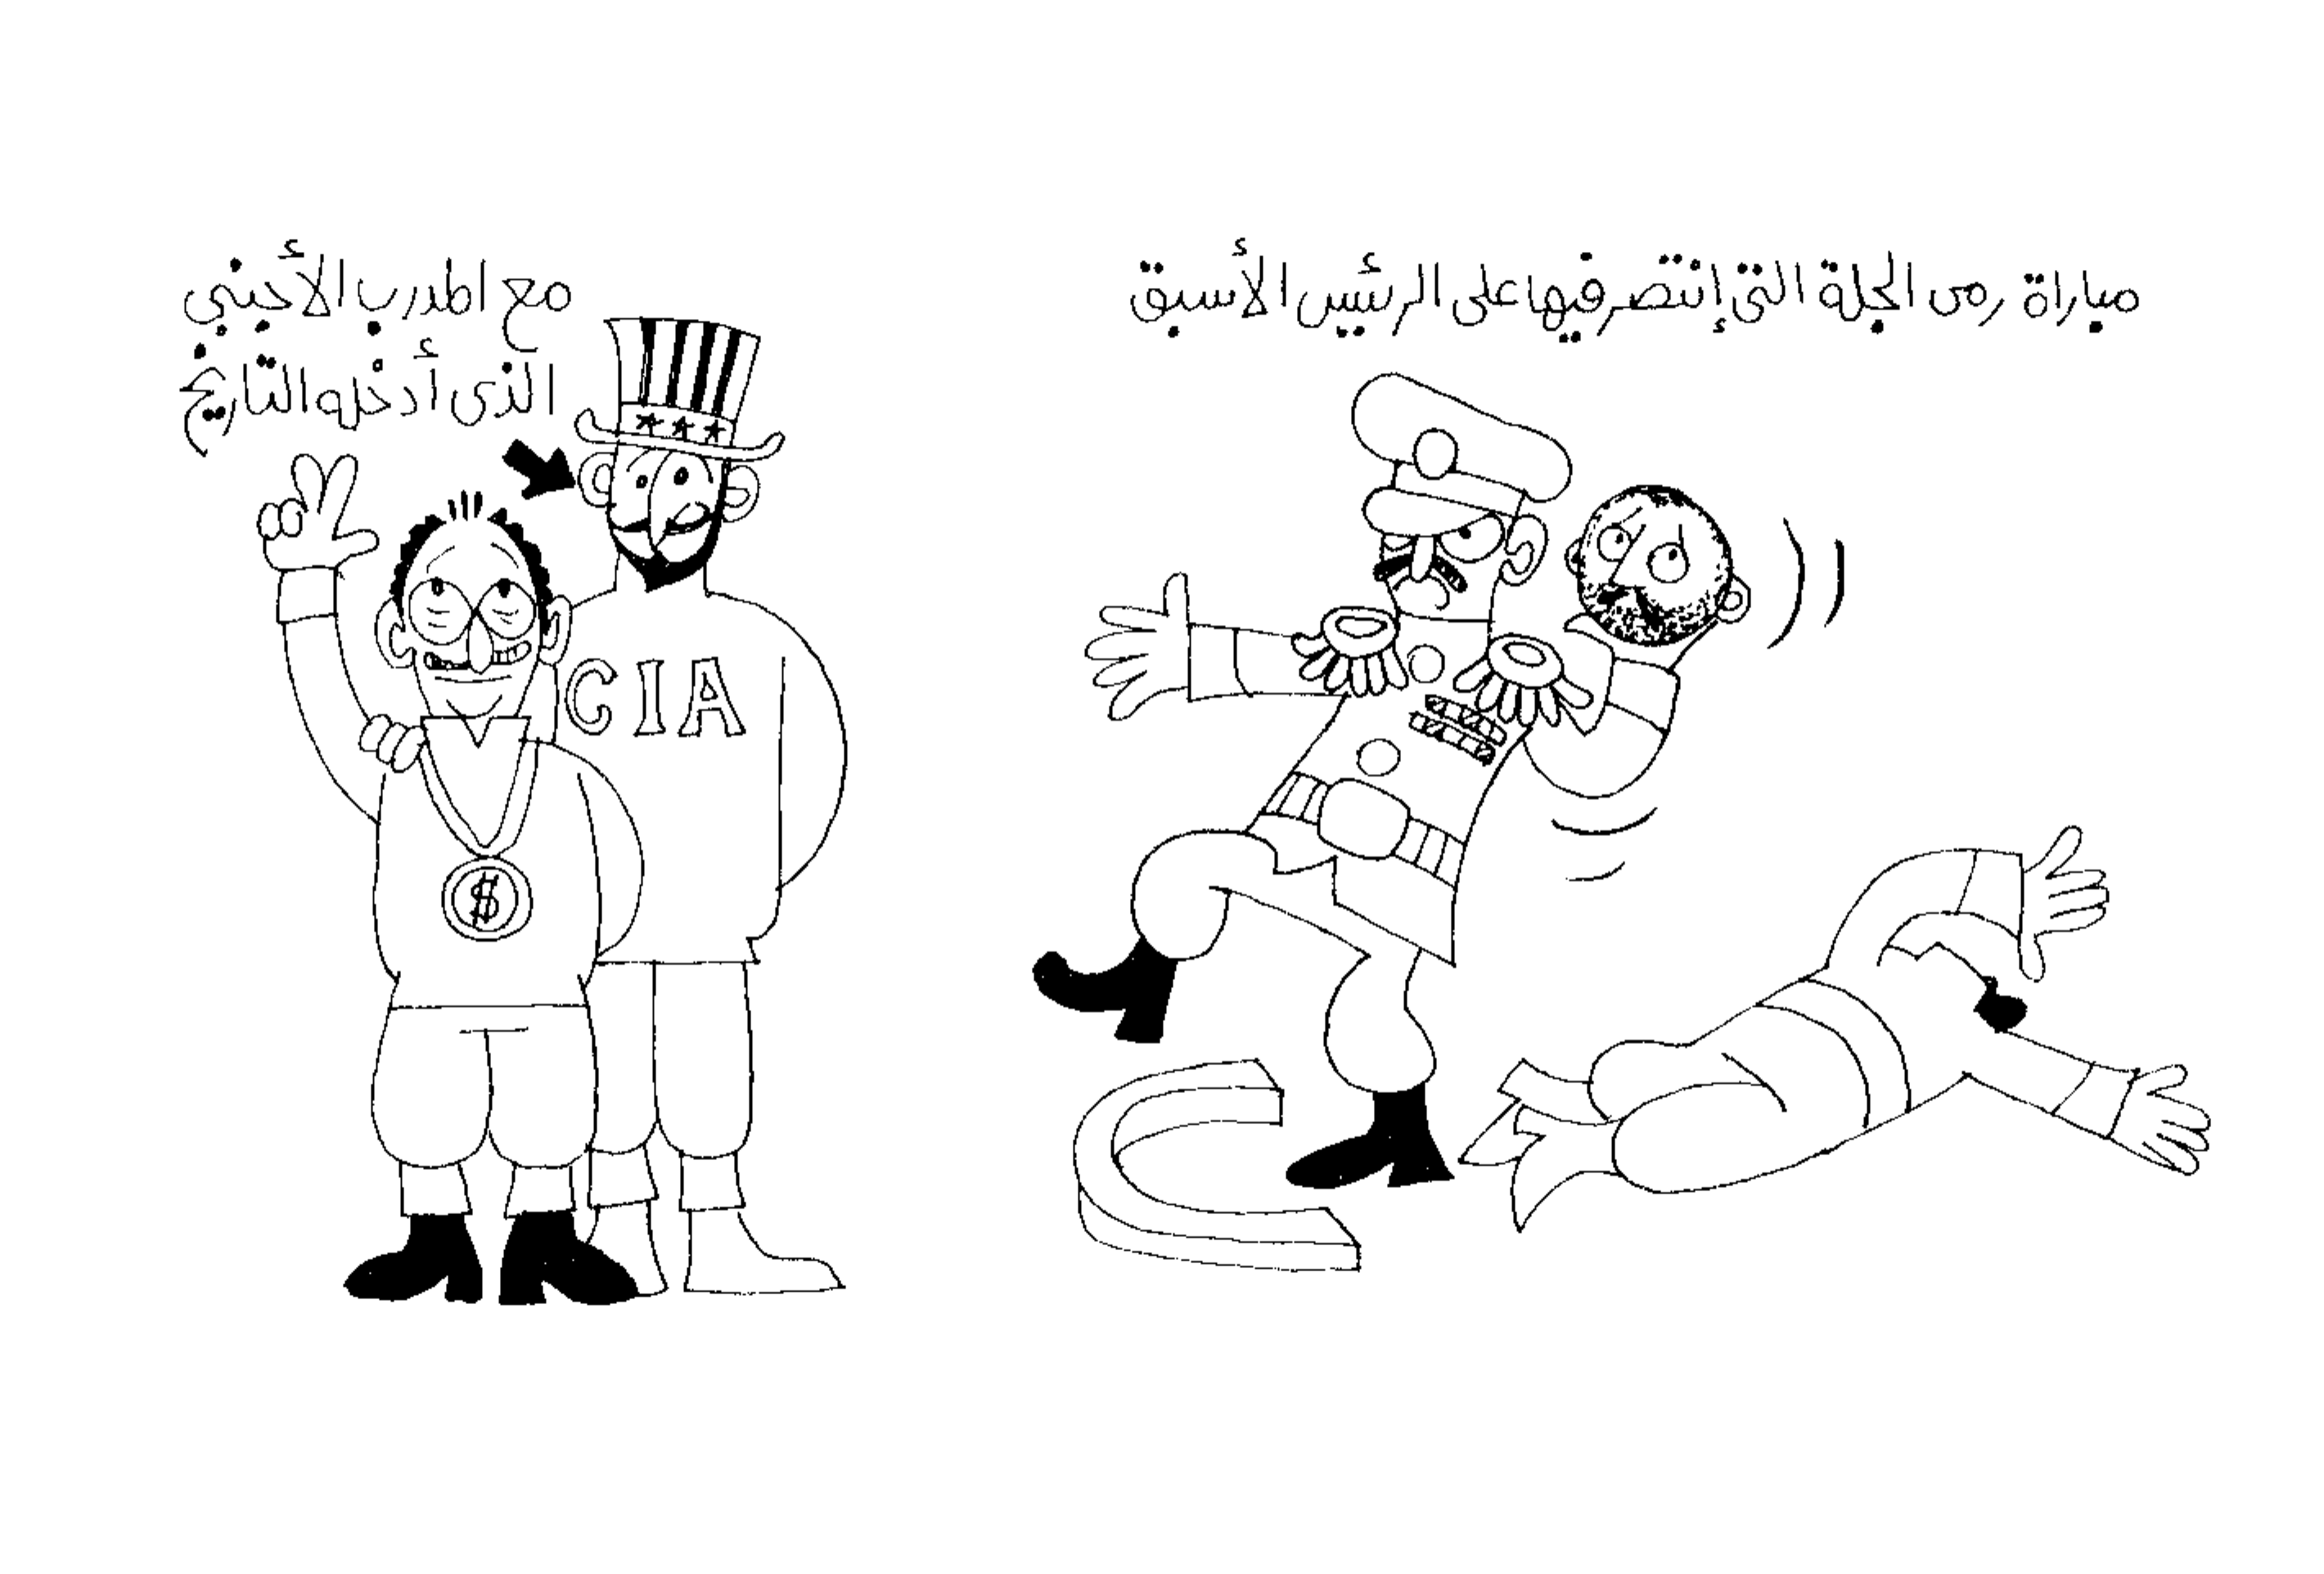 مباراة رمى الجلة التى إنتصر فيها على الرئيس الأسبق
مع المدرب الأجنبي
الذى أدخله التاريخ
CIA
$